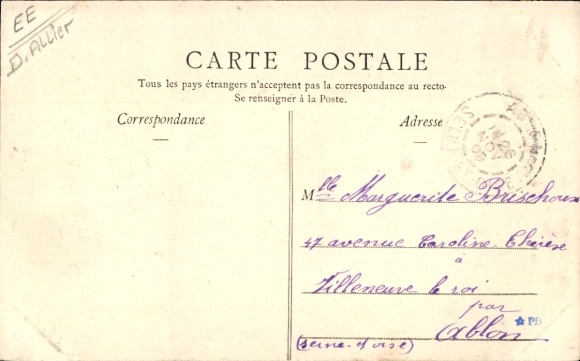 EE
D. Allier
CARTE POSTALE
Tous les pays étrangers n'acceptent pas la correspondance au recto.
Se renseigner à la Poste.
Correspondance
Adresse
26
Mlle Marguerite Brischoux
47 avenue Caroline-Thérèse
à
Villeneuve le roi
par
Ablon
(Seine-et-Oise)
PB